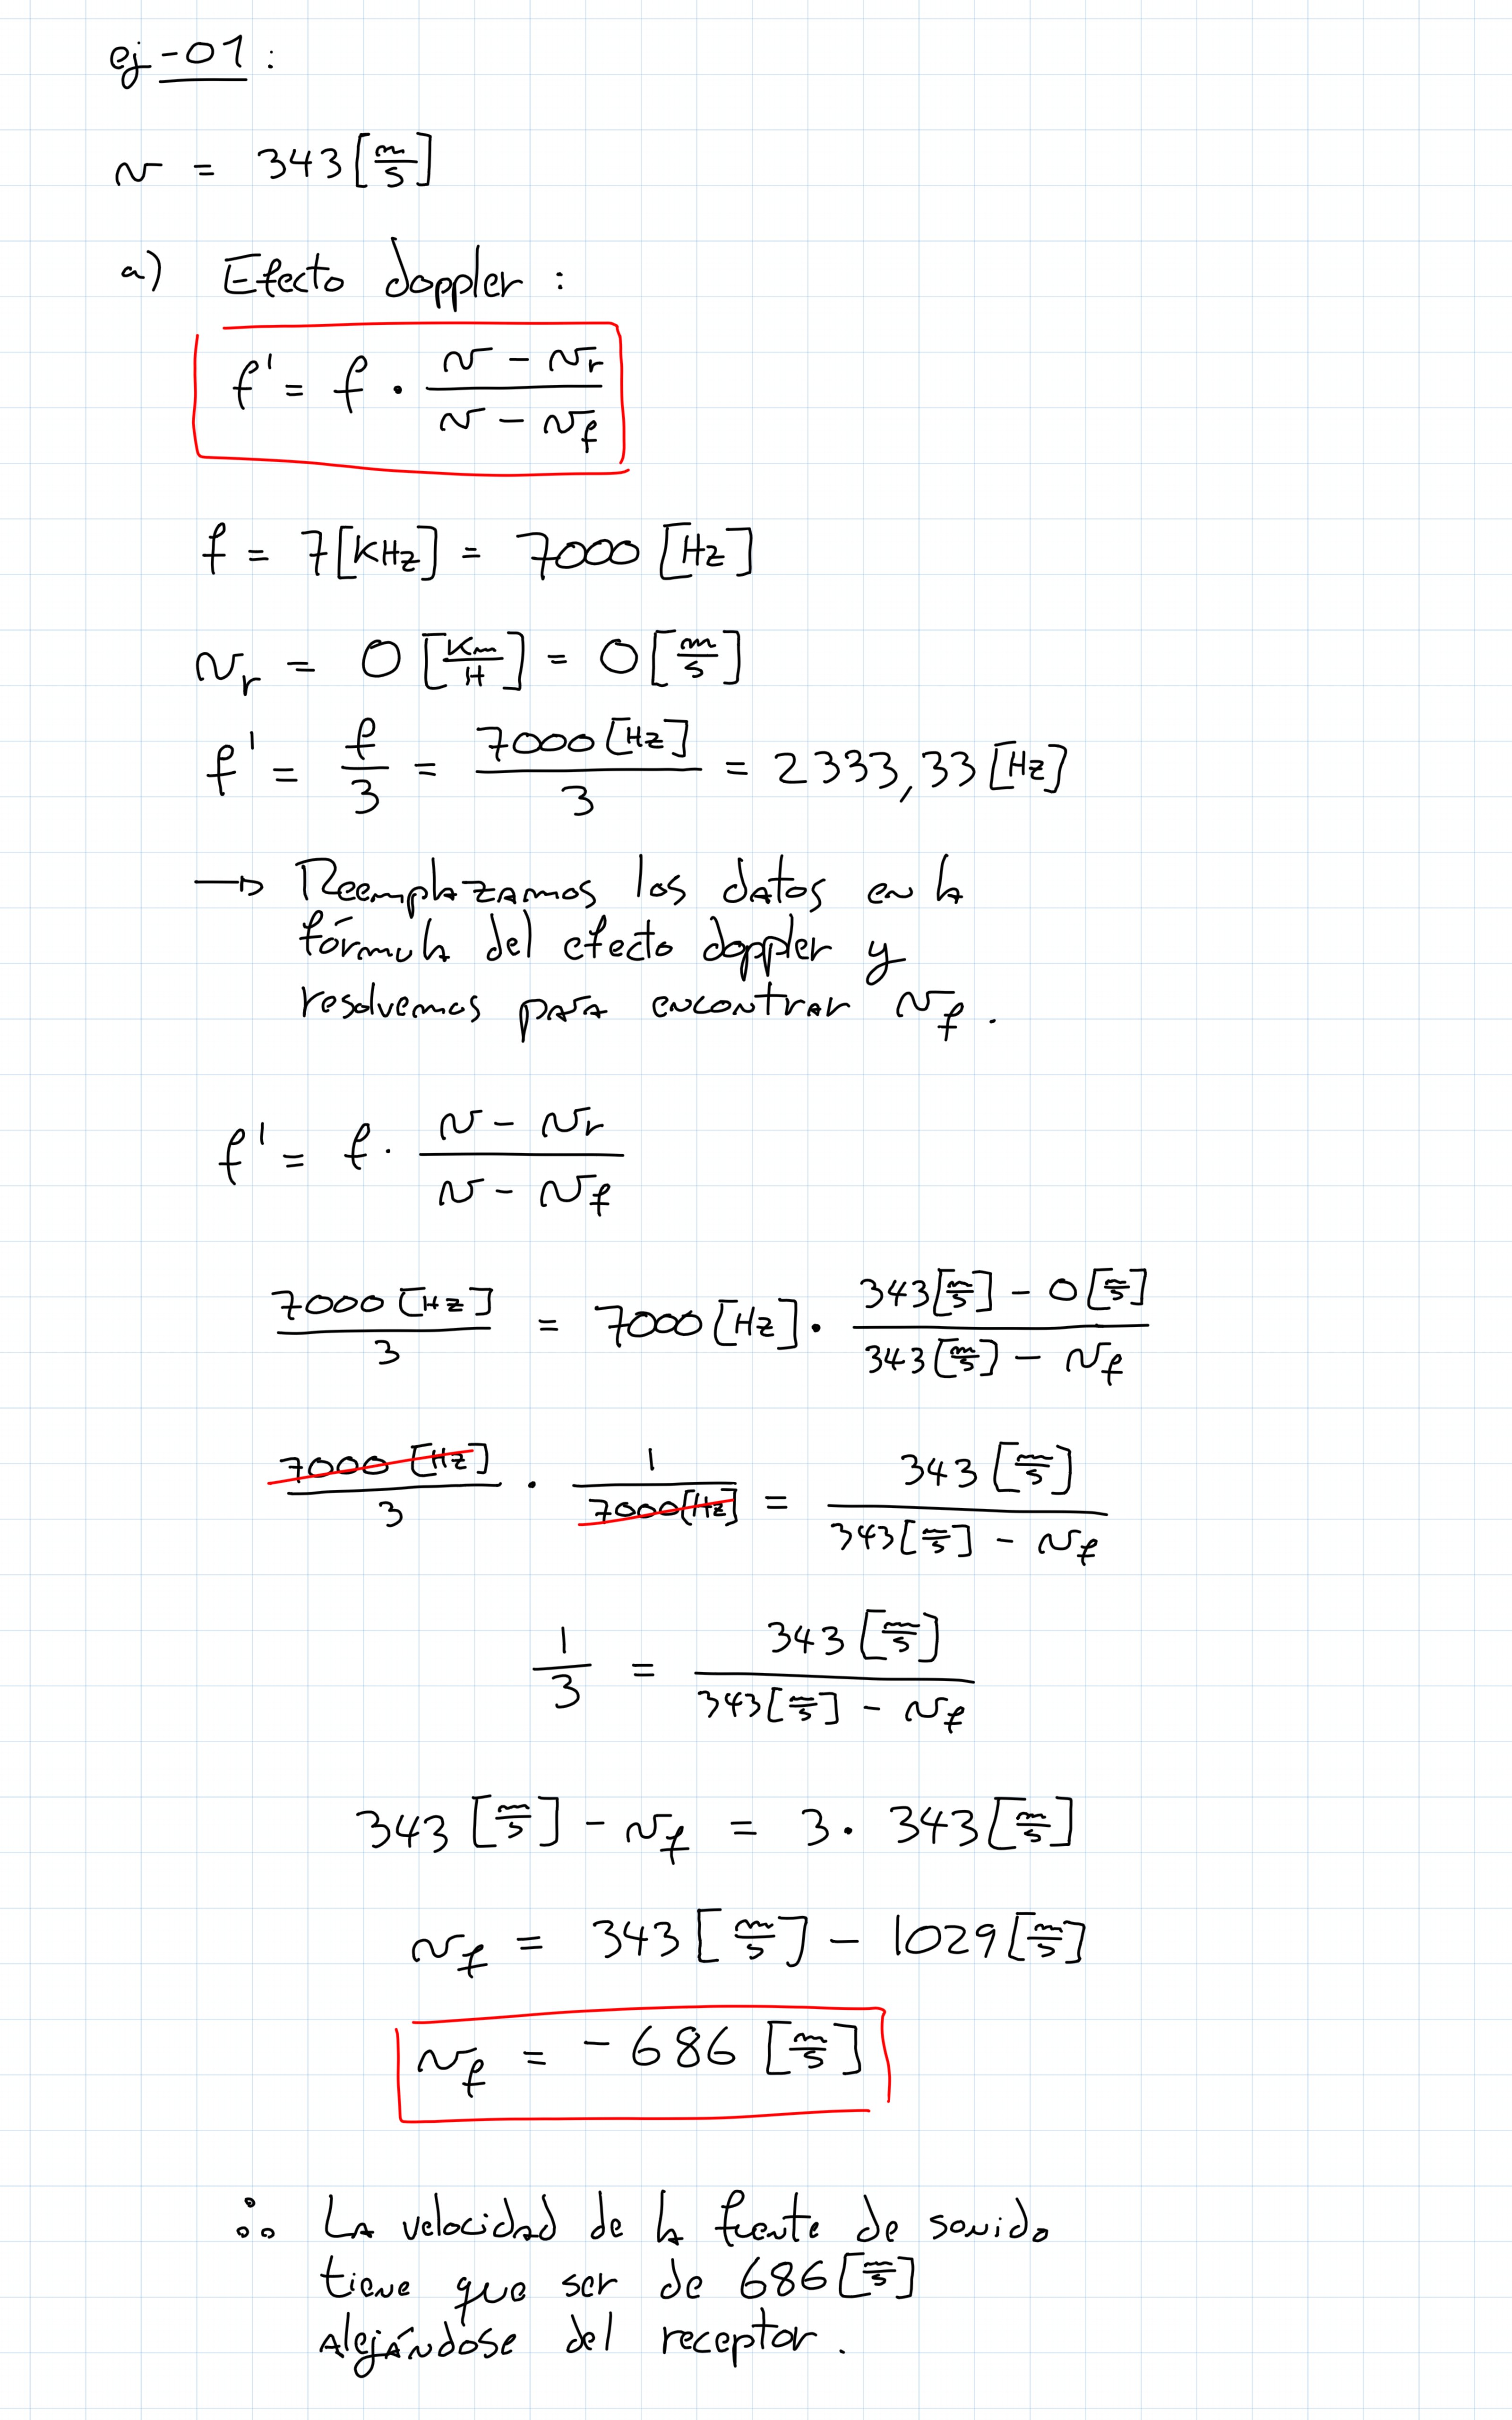 ej-01:
v = 343 [m/s]
a) Efecto doppler:
f' = f · (v - v_r)/(v - v_f)
f = 7[KHz] = 7000 [Hz]
v_r = 0 [Km/H] = 0 [m/s]
f' = f/3 = 7000 [Hz]/3 = 2333,33 [Hz]
→ Reemplazamos los datos en la
fórmula del efecto doppler y
resolvemos para encontrar v_f.
f' = f · (v - v_r)/(v - v_f)
7000 [Hz]/3 = 7000 [Hz] · (343[m/s] - 0[m/s])/(343[m/s] - v_f)
7000 [Hz]/3 · 1/7000[Hz] = 343 [m/s]/(343[m/s] - v_f)
1/3 = 343 [m/s]/(343[m/s] - v_f)
343 [m/s] - v_f = 3 · 343 [m/s]
v_f = 343 [m/s] - 1029 [m/s]
v_f = -686 [m/s]
∴ La velocidad de la fuente de sonido
tiene que ser de 686 [m/s]
Alejándose del receptor.